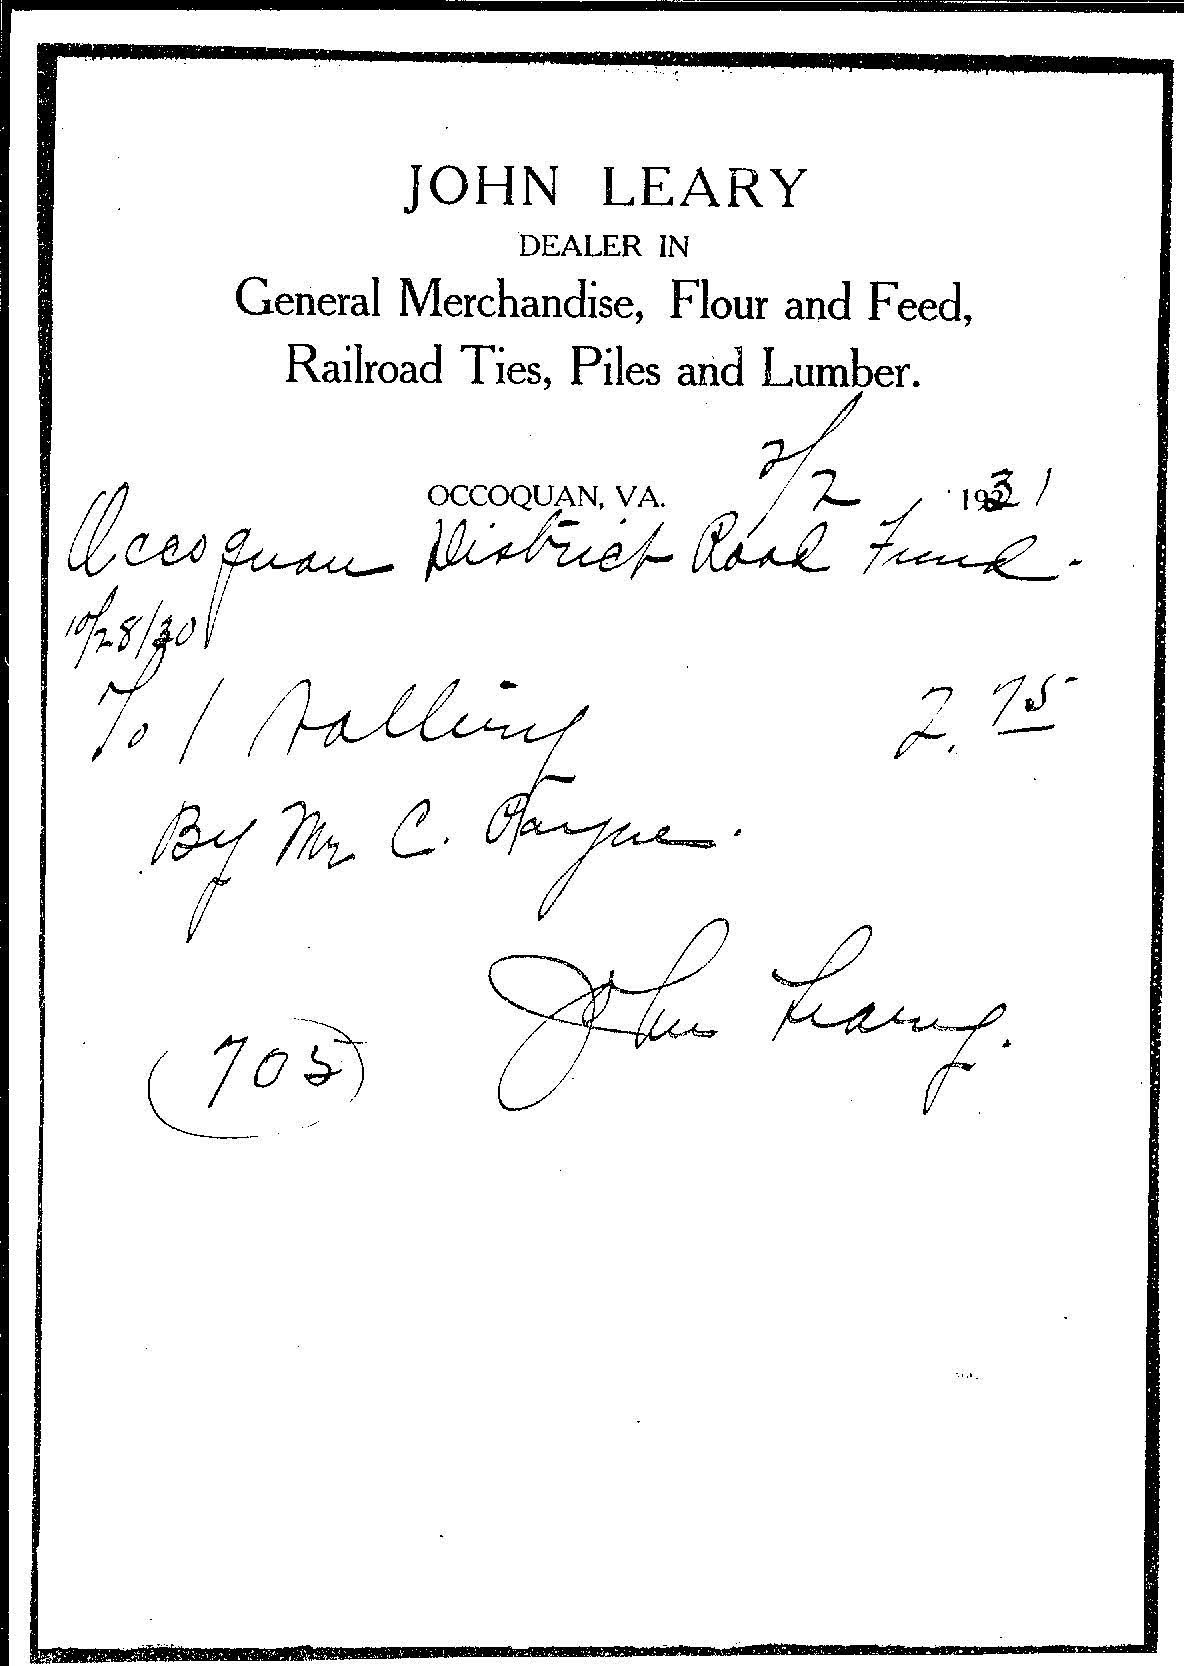 JOHN LEARY
DEALER IN
General Merchandise, Flour and Feed,
Railroad Ties, Piles and Lumber.
OCCOQUAN, VA. 2/2 1931
Occoquan District Road Fund.
10/28/30
To 1 2.75
By Mr C. Payne.
John Leary.
(705)